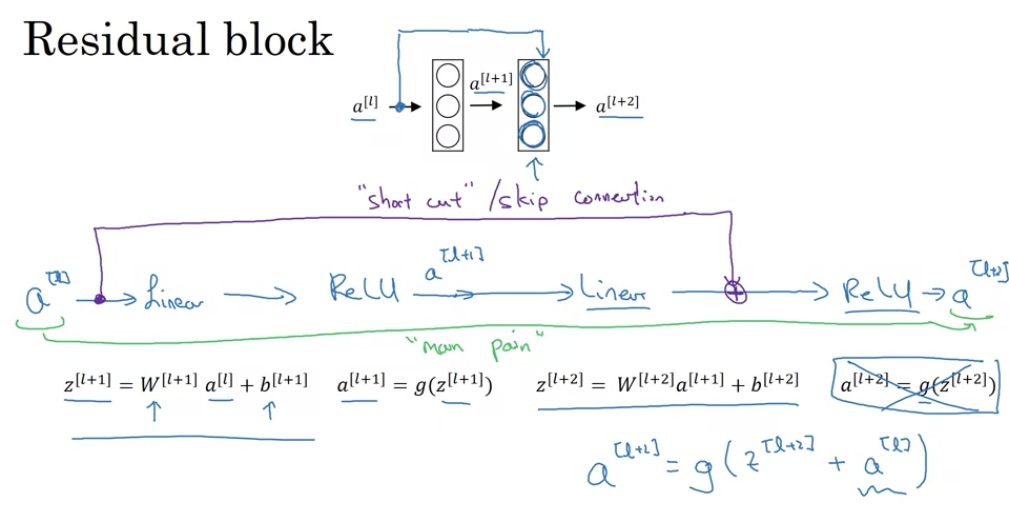 Residual block
a^[l] a^[l+1] a^[l+2]
"short cut" / skip connection
a^[l] Linear ReLU a^[l+1] Linear ReLU a^[l+2]
"main path"
z^[l+1] = W^[l+1] a^[l] + b^[l+1] a^[l+1] = g(z^[l+1]) z^[l+2] = W^[l+2] a^[l+1] + b^[l+2] a^[l+2] = g(z^[l+2])
a^[l+2] = g(z^[l+2] + a^[l])